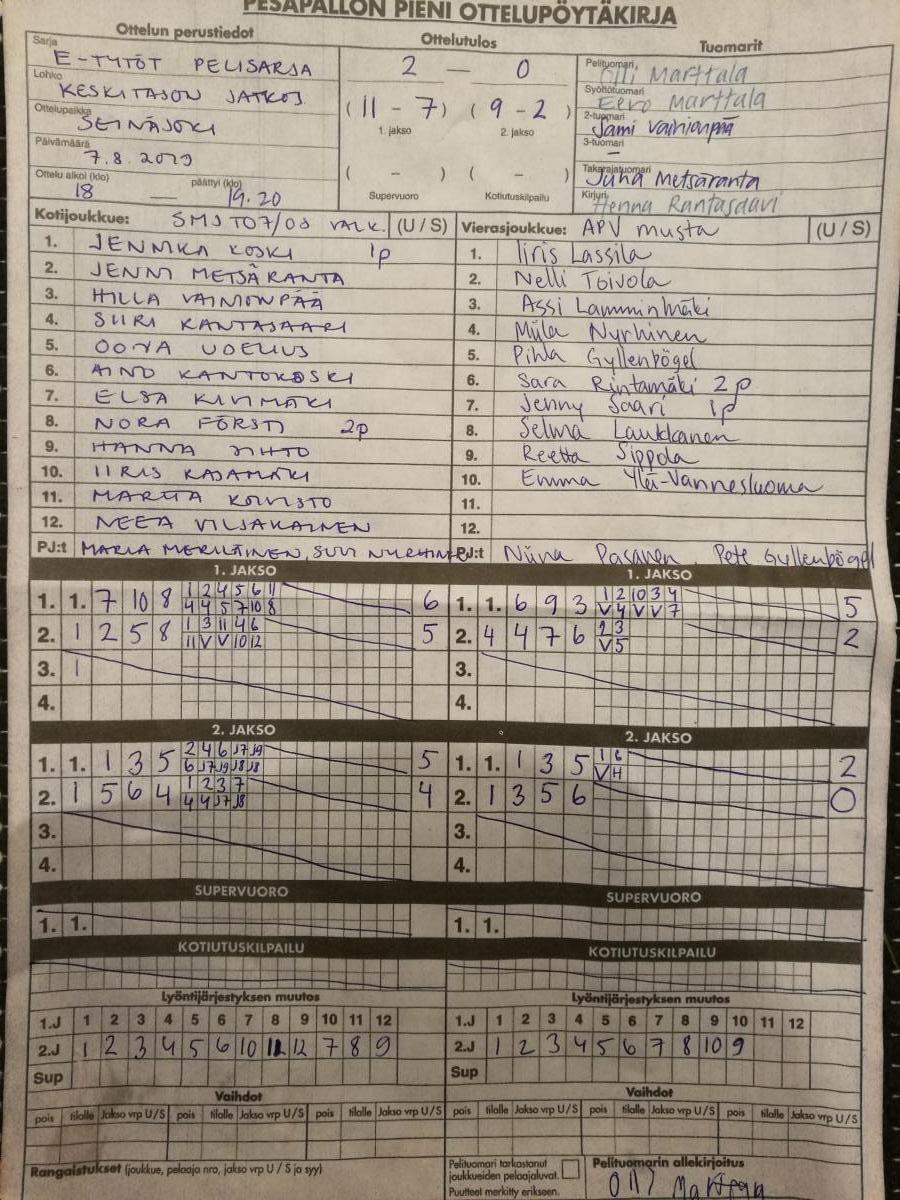 PESÄPALLON PIENI OTTELUPÖYTÄKIRJA
Ottelun perustiedot
Ottelutulos
Tuomarit
Sarja
E-TYTÖT PELISARJA
Lohko
KESKITASON JATKOS.
Ottelupaikka
SEINÄJOKI
Päivämäärä
7.8.2019
Ottelu alkoi (klo) päättyi (klo)
18 — 19.20
2 — 0
(11 - 7) (9 - 2)
1. jakso 2. jakso
( - ) ( - )
Supervuoro Kotiutuskilpailu
Pelituomari
Olli Marttala
Syöttötuomari
Eero Marttala
2-tuomari
Sami Vainionpää
3-tuomari
—
Takarajatuomari
Juha Metsäranta
Kirjuri
Henna
Kotijoukkue: SMJ T07/08 VALK. (U/S)
1. JENNIKA KOSKI 1p
2. JENNI METSÄRANTA
3. HILLA VAINIONPÄÄ
4. SIIRI KANTASAARI
5. OONA UDELIUS
6. AINO KANTOKOSKI
7. ELSA KIVIMÄKI
8. NORA FÖRSTI 2p
9. HANNA
10. IIRIS KAJAMÄKI
11. MARITA KOIVISTO
12. NEEA VILJAKAINEN
PJ:t MARIA MERILÄINEN, SUVI NYRHINEN
Vierasjoukkue: APV musta (U/S)
1. Iiris Lassila
2. Nelli Toivola
3. Assi Lamminmäki
4. Miila Nyrhinen
5. Pihla Gyllenbögel
6. Sara Rintamäki 2p
7. Jenny Saari 1p
8. Selma Laukkanen
9. Reetta Sippola
10. Emma Ylä-Vannesluoma
11.
12.
PJ:t Niina Pasanen, Pete Gyllenbögel
1. JAKSO
1. 1. 7 10 8 1 2 4 5 6 11 6
4 4 5 7 10 8
2. 1 2 5 8 1 3 11 4 6 5
11 V V 10 12
3. 1
4.
1. JAKSO
1. 1. 6 9 3 1 2 10 3 4 5
V 4 V V 7
2. 4 4 7 6 2 3 2
V 5
3.
4.
2. JAKSO
1. 1. 1 3 5 2 4 6 J7 J9 5
6 J7 J9 J8 J8
2. 1 5 6 4 1 2 3 7 4
4 4 J7 J8
3.
4.
2. JAKSO
1. 1. 1 3 5 1 6 2
V H
2. 1 3 5 6 0
3.
4.
SUPERVUORO
1. 1.
SUPERVUORO
1. 1.
KOTIUTUSKILPAILU
KOTIUTUSKILPAILU
Lyöntijärjestyksen muutos
1.J 1 2 3 4 5 6 7 8 9 10 11 12
2.J 1 2 3 4 5 6 10 11 12 7 8 9
Sup
Lyöntijärjestyksen muutos
1.J 1 2 3 4 5 6 7 8 9 10 11 12
2.J 1 2 3 4 5 6 7 8 10 9
Sup
Vaihdot
pois tilalle Jakso vrp U/S pois tilalle Jakso vrp U/S pois tilalle Jakso vrp U/S
Vaihdot
pois tilalle Jakso vrp U/S pois tilalle Jakso vrp U/S pois tilalle Jakso vrp U/S
Rangaistukset (joukkue, pelaaja nro, jakso vrp U / S ja syy)
Pelituomari tarkastanut
joukkueiden pelaajaluvat.
Puutteet merkitty erikseen.
Pelituomarin allekirjoitus
Olli Marttala